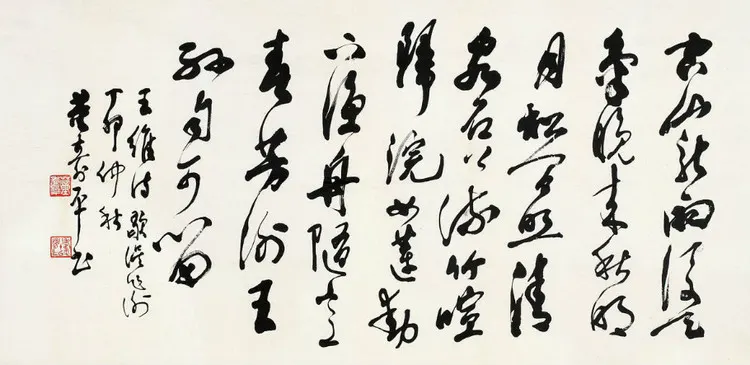 空山新雨後天
氣晚来秋明
月松间照清
泉石上流竹喧
歸浣女蓮動
下漁舟隨意
春芳谢王
孫自可留
王維诗歇误作谢
丁卯仲秋
董寿平书